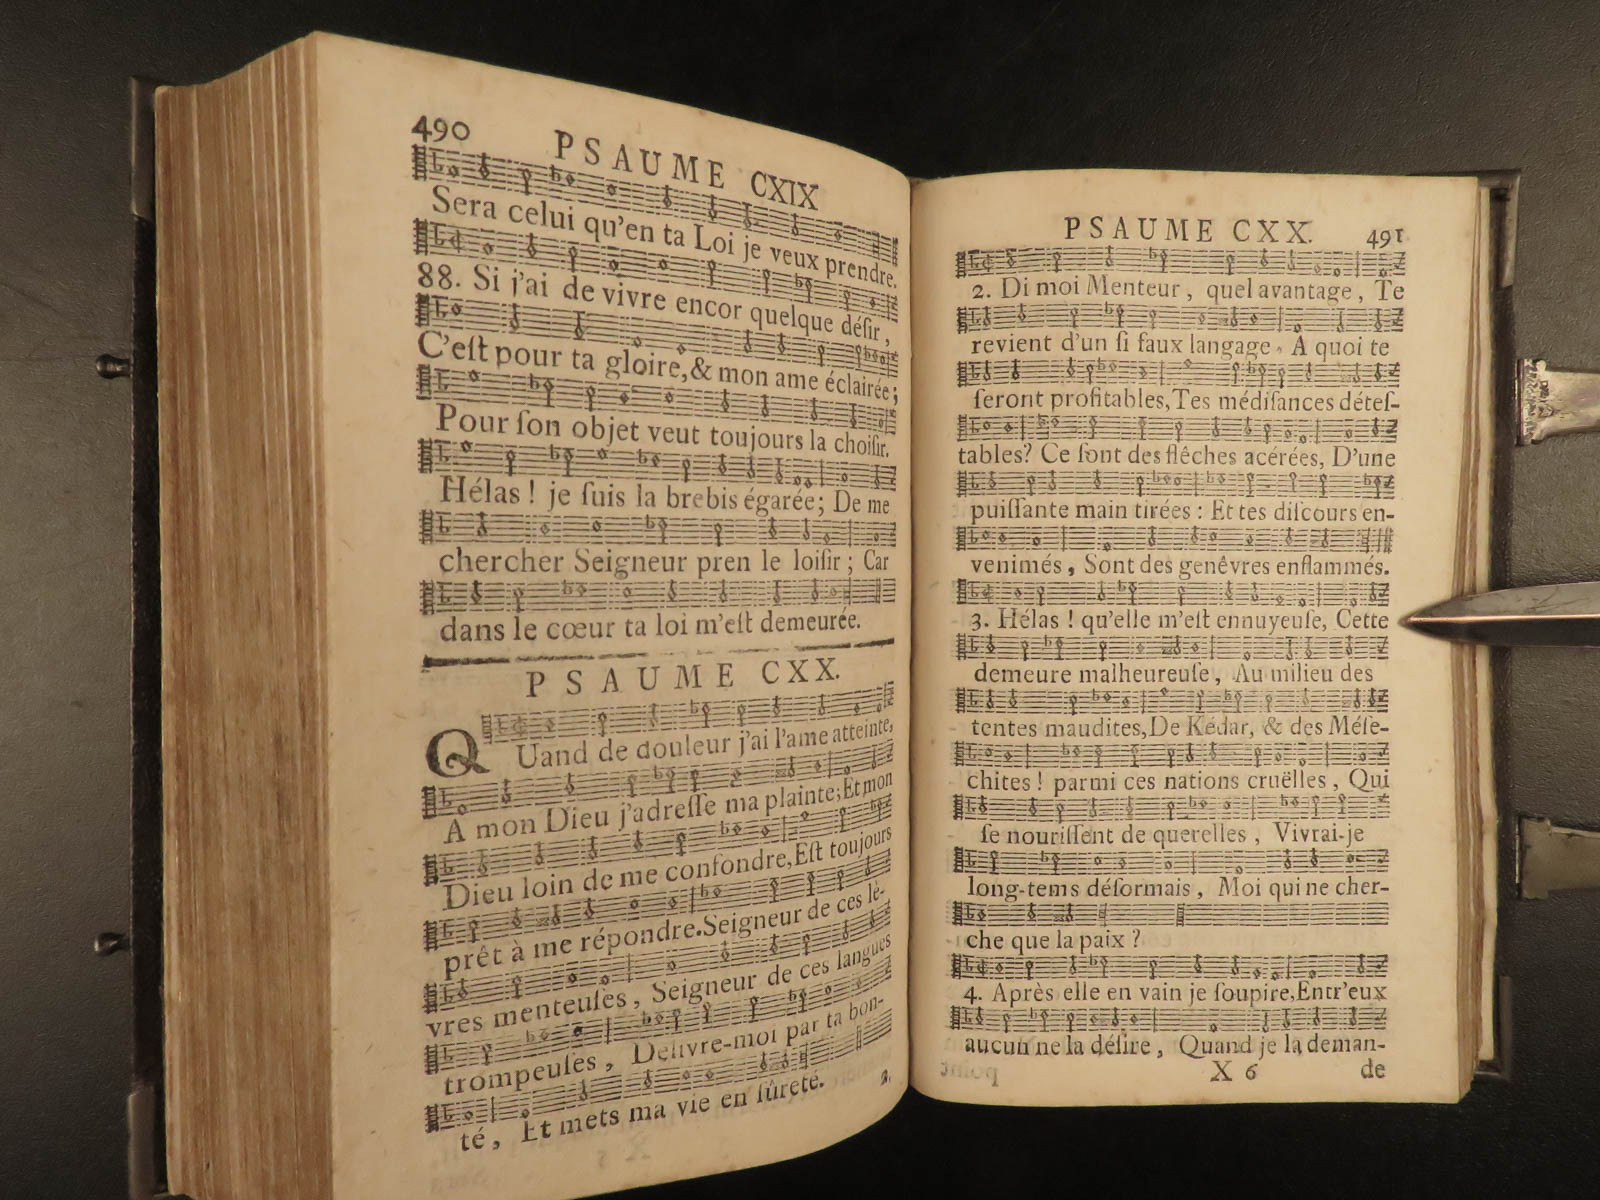 490
PSAUME CXIX
Sera celui qu'en ta Loi je veux prendre.
88. Si j'ai de vivre encor quelque désir,
C'eſt pour ta gloire, & mon ame éclairée;
Pour ſon objet veut toujours la choiſir.
Hélas! je ſuis la brebis égarée; De me
chercher Seigneur pren le loiſir; Car
dans le cœur ta loi m'eſt demeurée.
PSAUME CXX.
QUand de douleur j'ai l'ame atteinte,
A mon Dieu j'adreſſe ma plainte; Et mon
Dieu loin de me confondre, Eſt toujours
prêt à me répondre. Seigneur de ces lé-
vres menteuſes, Seigneur de ces langues
trompeuſes, Délivre-moi par ta bon-
té, Et mets ma vie en ſûreté.
2.
PSAUME CXX.
491
2. Di moi Menteur, quel avantage, Te
revient d'un ſi faux langage. A quoi te
ſeront profitables, Tes médiſances déteſ-
tables? Ce ſont des flêches acérées, D'une
puiſſante main tirées: Et tes diſcours en-
venimés, Sont des genêvres enflammés.
3. Hélas! qu'elle m'eſt ennuyeuſe, Cette
demeure malheureuſe, Au milieu des
tentes maudites, De Kédar, & des Méſe-
chites! parmi ces nations cruëlles, Qui
ſe nouriſſent de querelles, Vivrai-je
long-tems déſormais, Moi qui ne cher-
che que la paix?
4. Après elle en vain je ſoupire, Entr'eux
aucun ne la déſire, Quand je la deman-
X 6
de